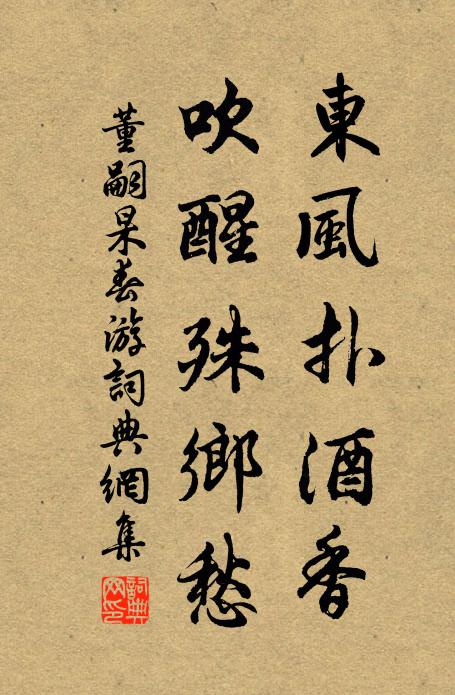 東風扑酒香
吹醒殊鄉愁
董嗣杲春游詞典網集
詞典網印